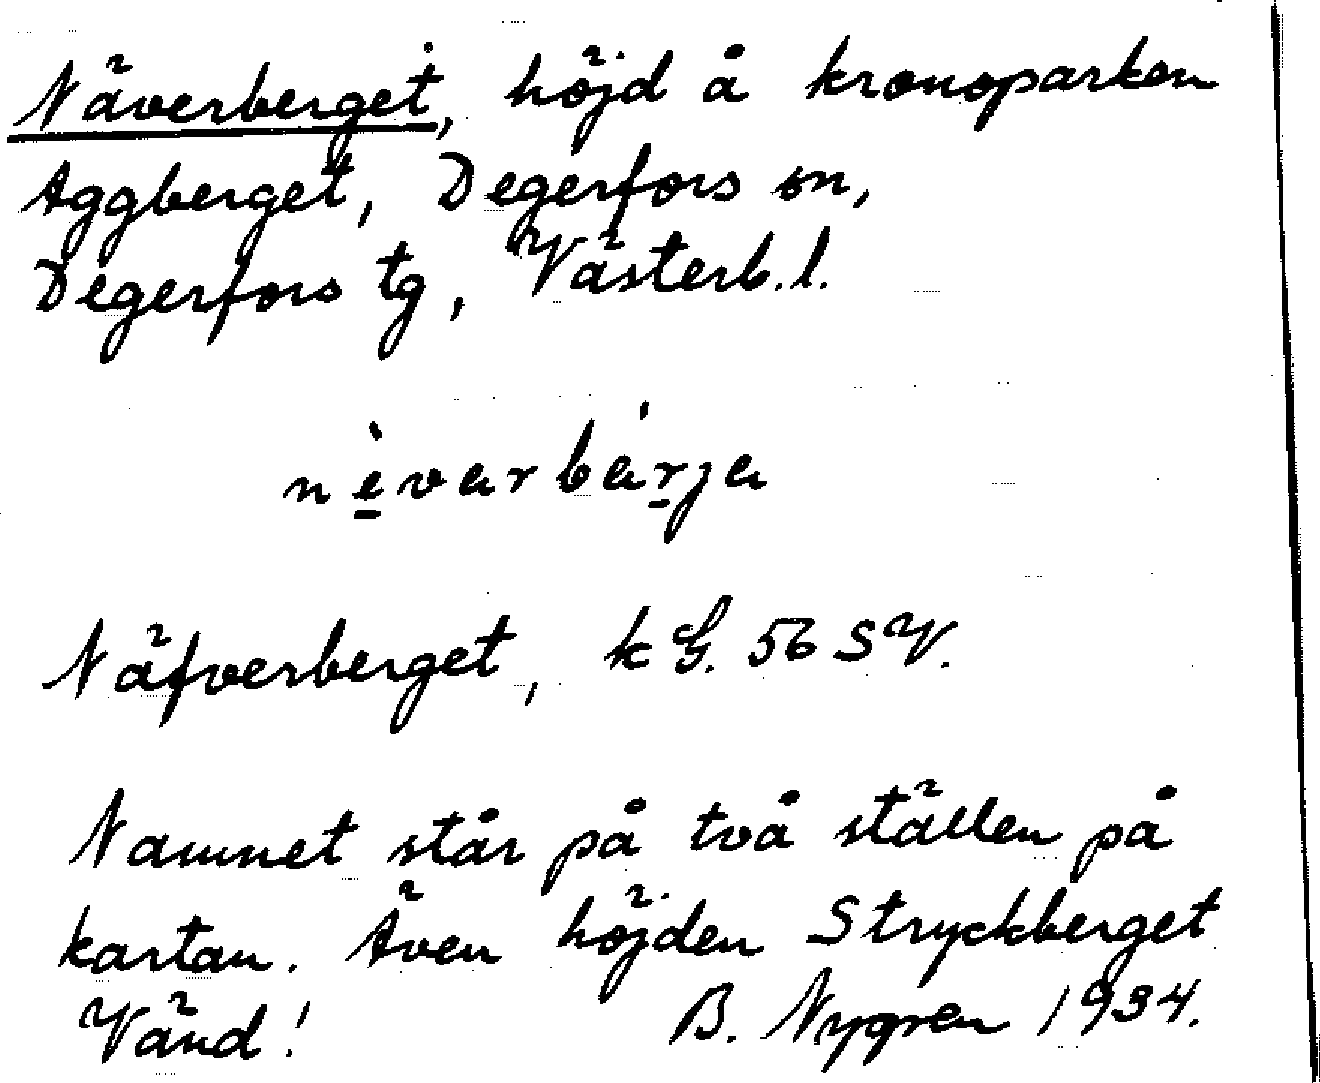 Näverberget, höjd å kronoparken
Aggberget, Degerfors sn,
Degerfors tg, Västerb.l.
nèvarbárja
Näfverberget, kG. 56 SV.
Namnet står på två ställen på
kartan. Även höjden Stryckberget
Vänd! B. Nygren 1934.